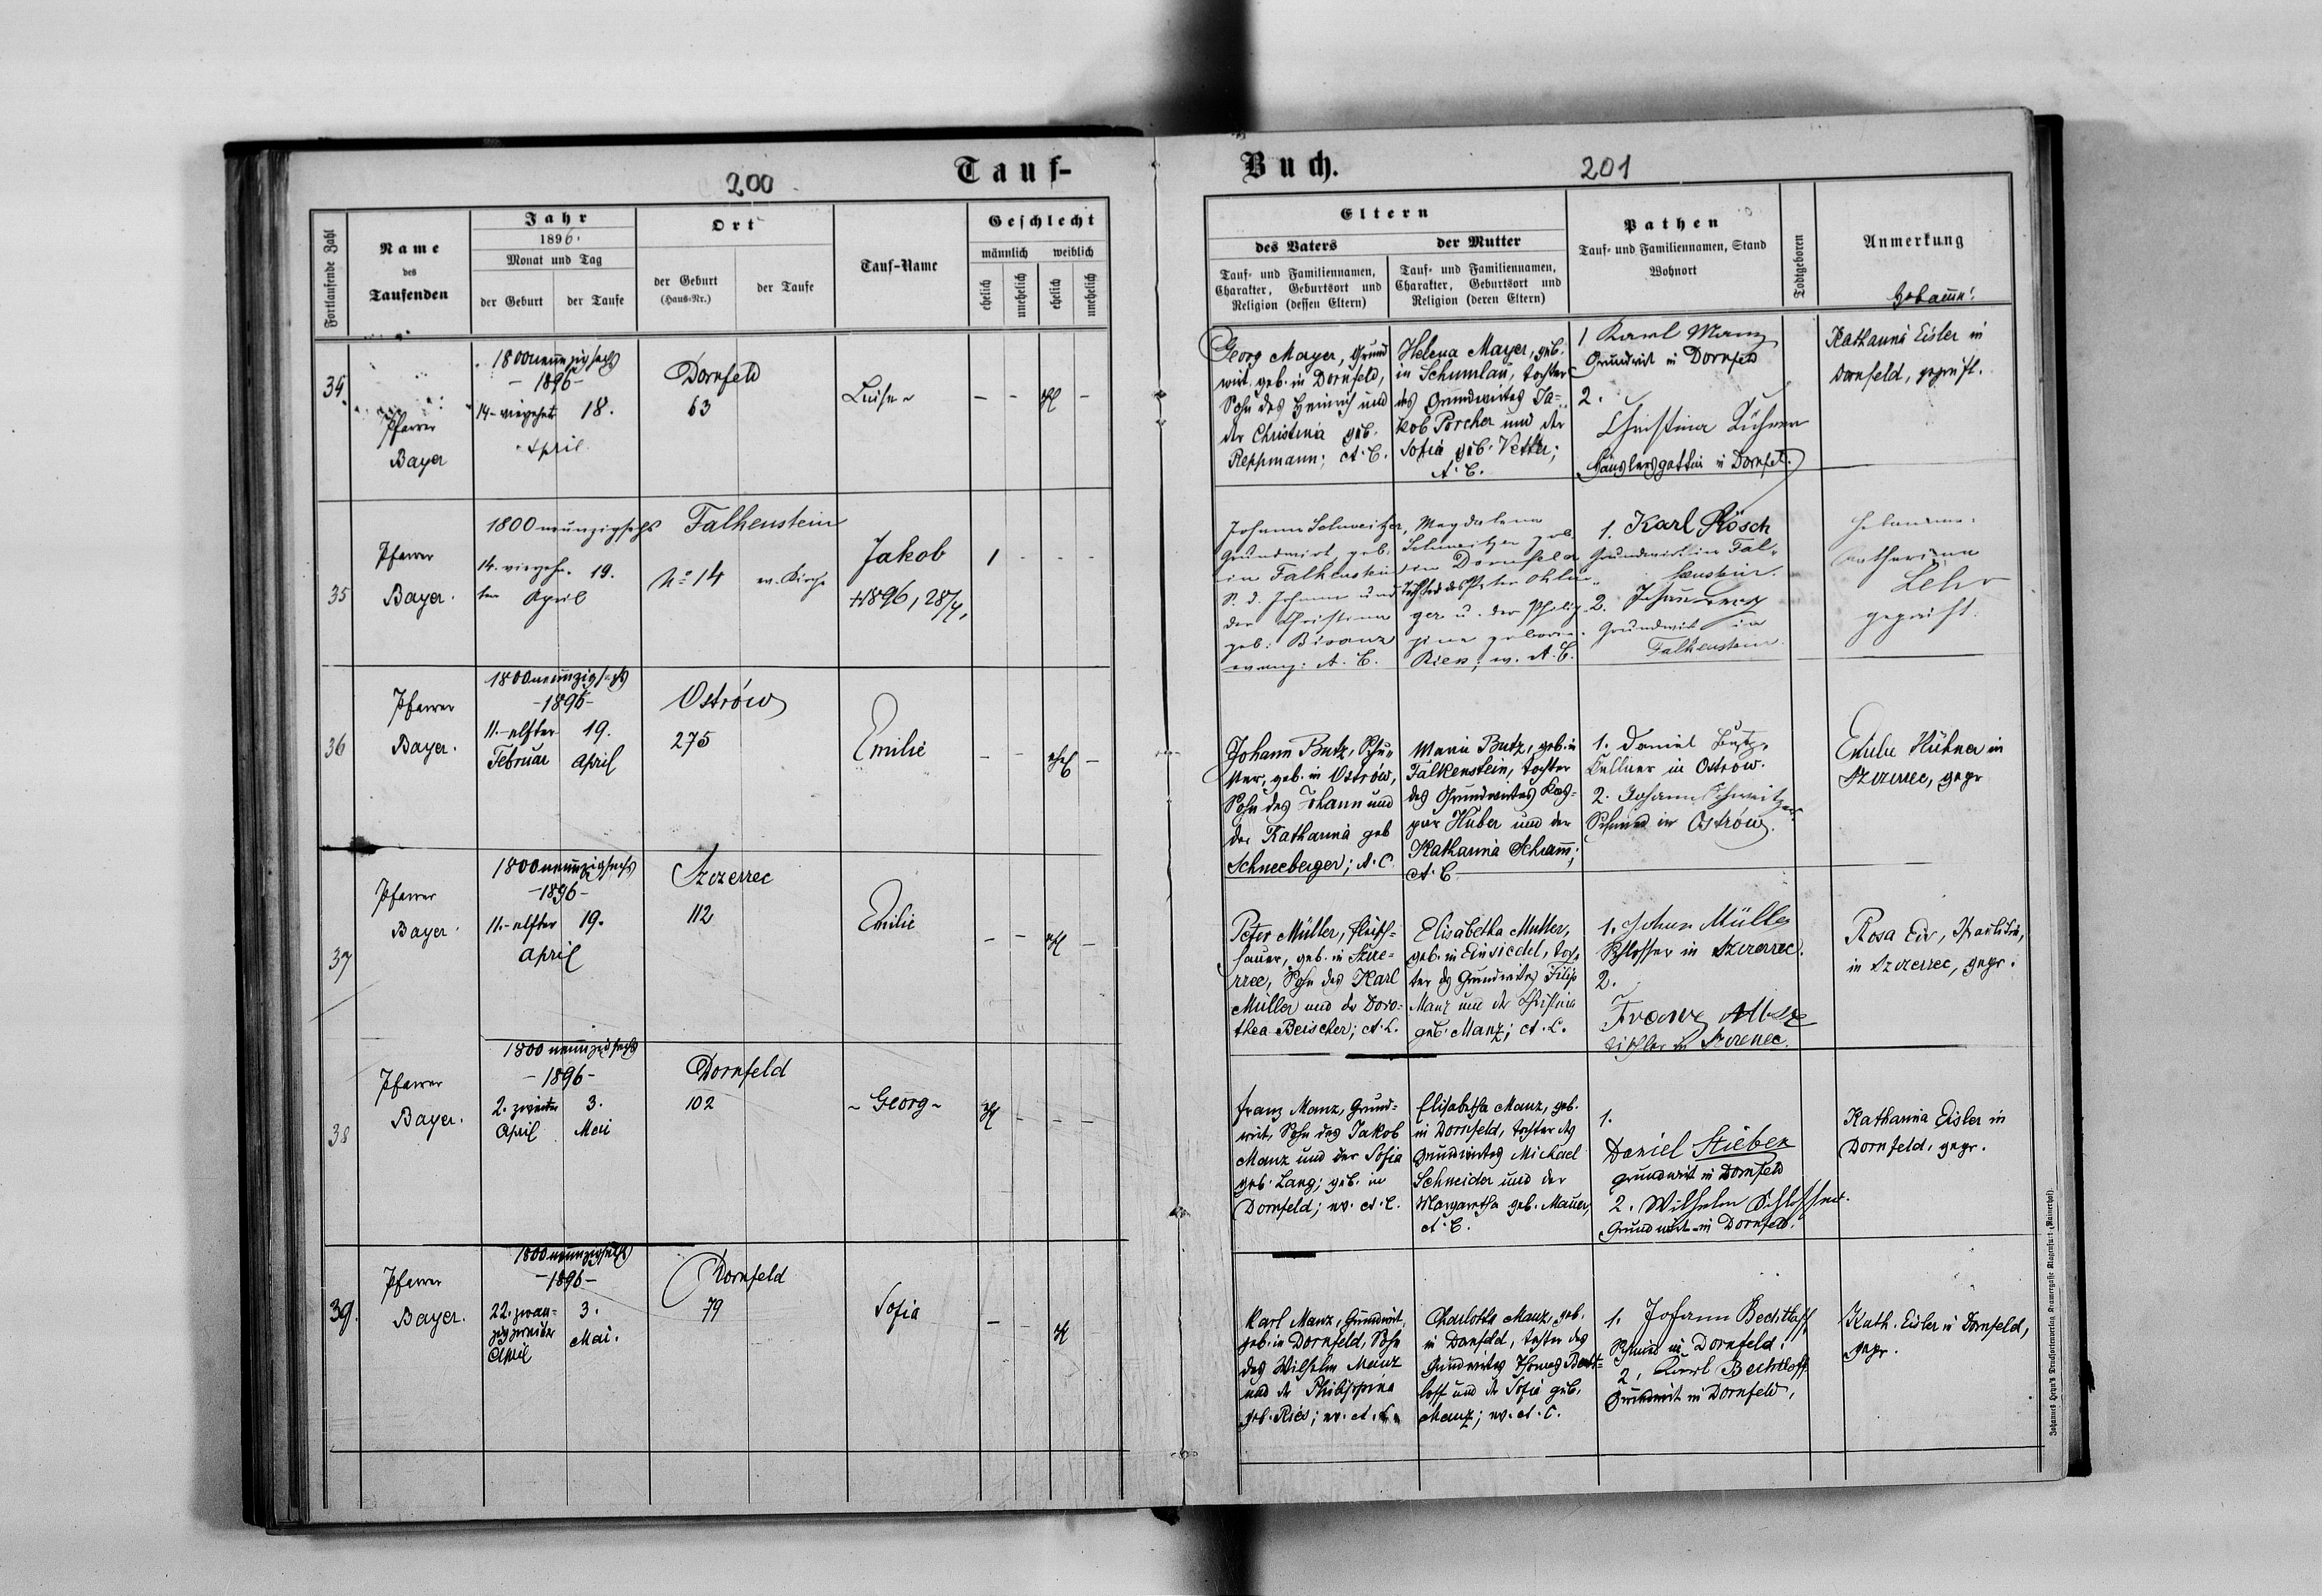 200
Tauf-
Fortlaufende Zahl
Name
des
Taufenden
Jahr
1896.
Monat und Tag
der Geburt
der Taufe
Ort
der Geburt
(Haus-Nr.)
der Taufe
Tauf-Name
Geschlecht
männlich
weiblich
ehelich
unehelich
ehelich
unehelich
34.
Pfarrer
Bayer
1800neunzigsechs
- 1896 -
14 - vierzehnt
18.
April
Dornfeld
63
Luise
35
Pfarrer
Bayer.
1800neunzigsechs
14. vierzehn-
19.
ter April
Falkenstein
No 14
ev. Kirche
Jakob
+1896, 28/4,
1
36
Pfarrer
Bayer.
1800neunzigsechs
-1896-
11.-elfter
19.
Februar
April
Ostrów
275
Emilie
37
Pfarrer
Bayer
1800neunzigsechs
-1896-
11.-elfter
19.
April
Szczerzec
112
Emilie
38
Pfarrer
Bayer.
1800neunzigsechs
- 1896 -
2. zweiter
3.
April
Mai
Dornfeld
102
- Georg -
39.
Pfarrer
Bayer.
1800neunzigsechs
-1896-
22. zwan-
3.
zigzweiter
Mai.
April
Dornfeld
79
Sofia
Buch.
201
Eltern
des Vaters
der Mutter
Tauf- und Familiennamen,
Charakter, Geburtsort und
Religion (dessen Eltern)
Tauf- und Familiennamen,
Charakter, Geburtsort und
Religion (deren Eltern)
Pathen
Tauf- und Familiennamen, Stand
Wohnort
Todtgeboren
Anmerkung
Hebamme:
Georg Mayer, Grund
wirt, geb. in Dornfeld,
Sohn des Heinrich und
der Christina geb.
Reppmann; A. C.
Helena Mayer, geb.
in Schumlau, Tochter
des Grundwirtes Ja-
kob Porcher und der
Sofia geb. Vetter;
A. C.
1 Karl Manz
Grundwirt in Dornfeld
2.
Christina
Häuslersgattin in Dornfeld.
Katharina Eisler in
Dornfeld, geprüft.
Johann Schweitzer,
Grundwirt, geb.
in Falkenstein,
S. d. Johann und
der Christina
geb: Bisanz
evang: A. C.
Magdalena
Schweitzer geb.
in Dornfeld
Tochter des Peter Ohlin-
ger u. der Philip-
pine geboren.
Ries; ev. A. C.
1. Karl Rösch
Grundwirt in Fal-
kenstein.
2. Johann
Grundwirt in
Falkenstein.
Hebamme:
Katharina
Lehr
geprüft.
Johann Butz, Schu-
ster, geb. in Ostrów,
Sohn des Johann und
der Katharina geb
Schneeberger; A. C.
Maria Butz, geb. in
Falkenstein, Tochter
des Grundwirtes Kas-
par Huber und der
Katharina Schramm;
A. C.
1. Daniel Butz,
Kellner in Ostrow.
2. Johann Schweitzer
Schmied in Ostrów.
Hübner in
Szczerzec, gepr
Peter Müller, Fleisch-
hauer, geb. in Szcze-
rzec, Sohn des Karl
Müller und der Doro-
thea Beischer; A. C.
Elisabetha Müller,
geb. in Einsiedel, Toch-
ter des Grundwirtes Filip
Manz und der Christina
geb. Manz; A. C.
1. Johann Müller
Schlosser in Szczerzec.
2.
Franz
Tischler in Szczerzec.
Rosa
in Szczerzec, gepr.
Franz Manz, Grund-
wirt, Sohn des Jakob
Manz und der Sofia
geb. Lang; geb. in
Dornfeld; ev. A. C.
Elisabetha Manz, geb.
in Dornfeld, Tochter des
Grundwirtes Michael
Schneider und der
Margaretha geb. Mauer,
A. C.
1.
Daniel Stieber
Grundwirt in Dornfeld
2. Wilhelm Schlosser.
Grundwirt in Dornfeld.
Katharina Eisler in
Dornfeld, gepr.
Karl Manz, Grundwirt,
geb. in Dornfeld, Sohn
des Wilhelm Manz
und der Philippina
geb. Ries; ev. A. C.
Charlotte Manz, geb.
in Dornfeld, Tochter des
Grundwirtes Thomas Becht-
loff und der Sofia geb.
Manz; ev. A. C.
1. Johann Bechtloff
Schmied in Dornfeld.
2. Karl Bechtloff
Grundwirt in Dornfeld,
Kath. Eisler in Dornfeld,
gepr.
Johannes Heyn's Drucksortenverlag Kramergasse Klagenfurt (Rainerhof).